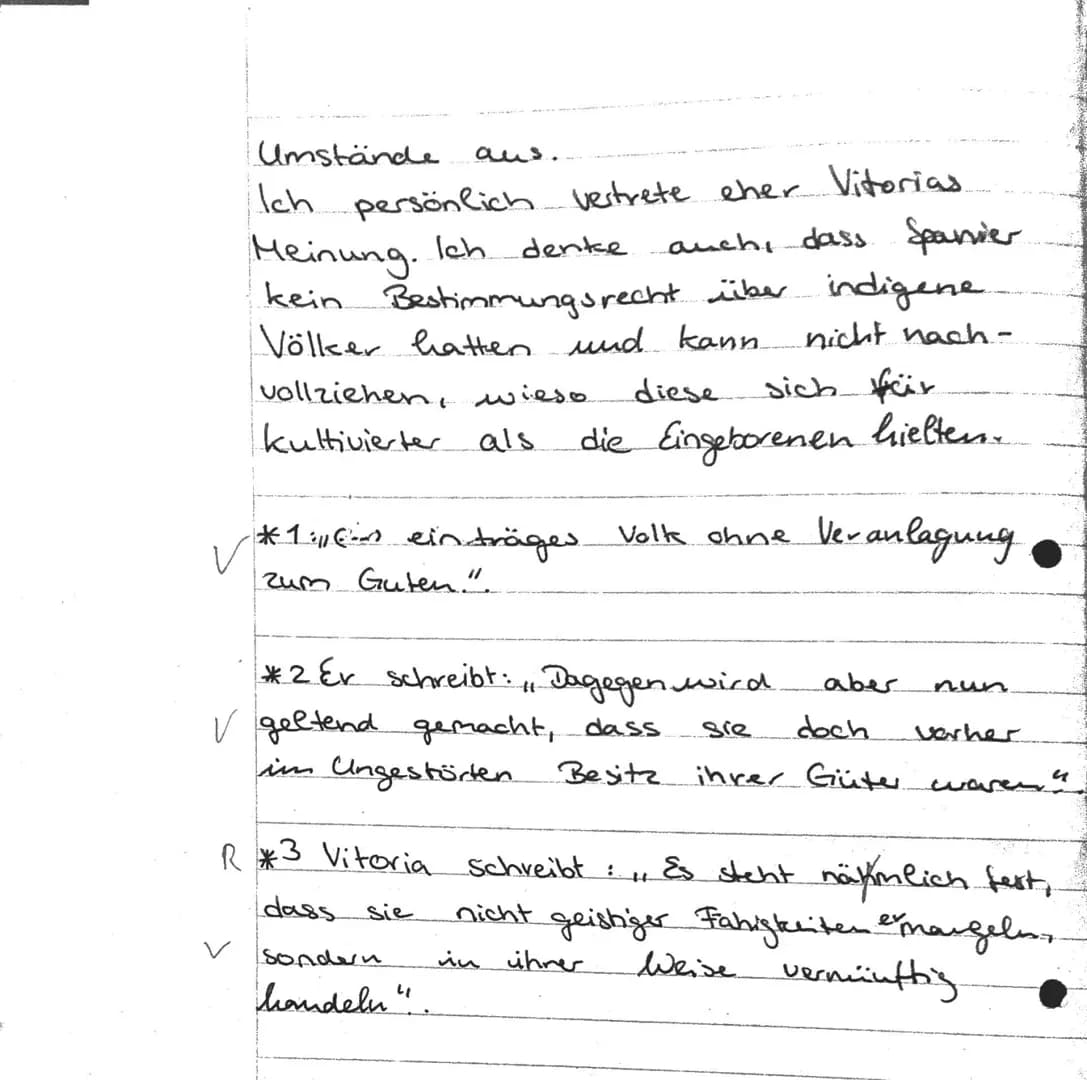 Umstände aus.
Ich persönlich vertrete eher Vitorias
Meinung. Ich denke auch, dass Spanier
kein Bestimmungsrecht über indigene
Völker hatten und kann nicht nach-
vollziehen, wieso diese sich für
kultivierter als die Eingeborenen hielten.
V *1: „(...) ein träges Volk ohne Veranlagung
zum Guten".
*2 Er schreibt: „Dagegen wird aber nun
V geltend gemacht, dass sie doch vorher
im Ungestörten Besitz ihrer Güter waren".
R *3 Vitoria schreibt: „Es steht nämlich fest,
dass sie nicht geistiger Fähigkeiten ermangeln,
V sondern in ihrer Weise vernünftig
handeln".